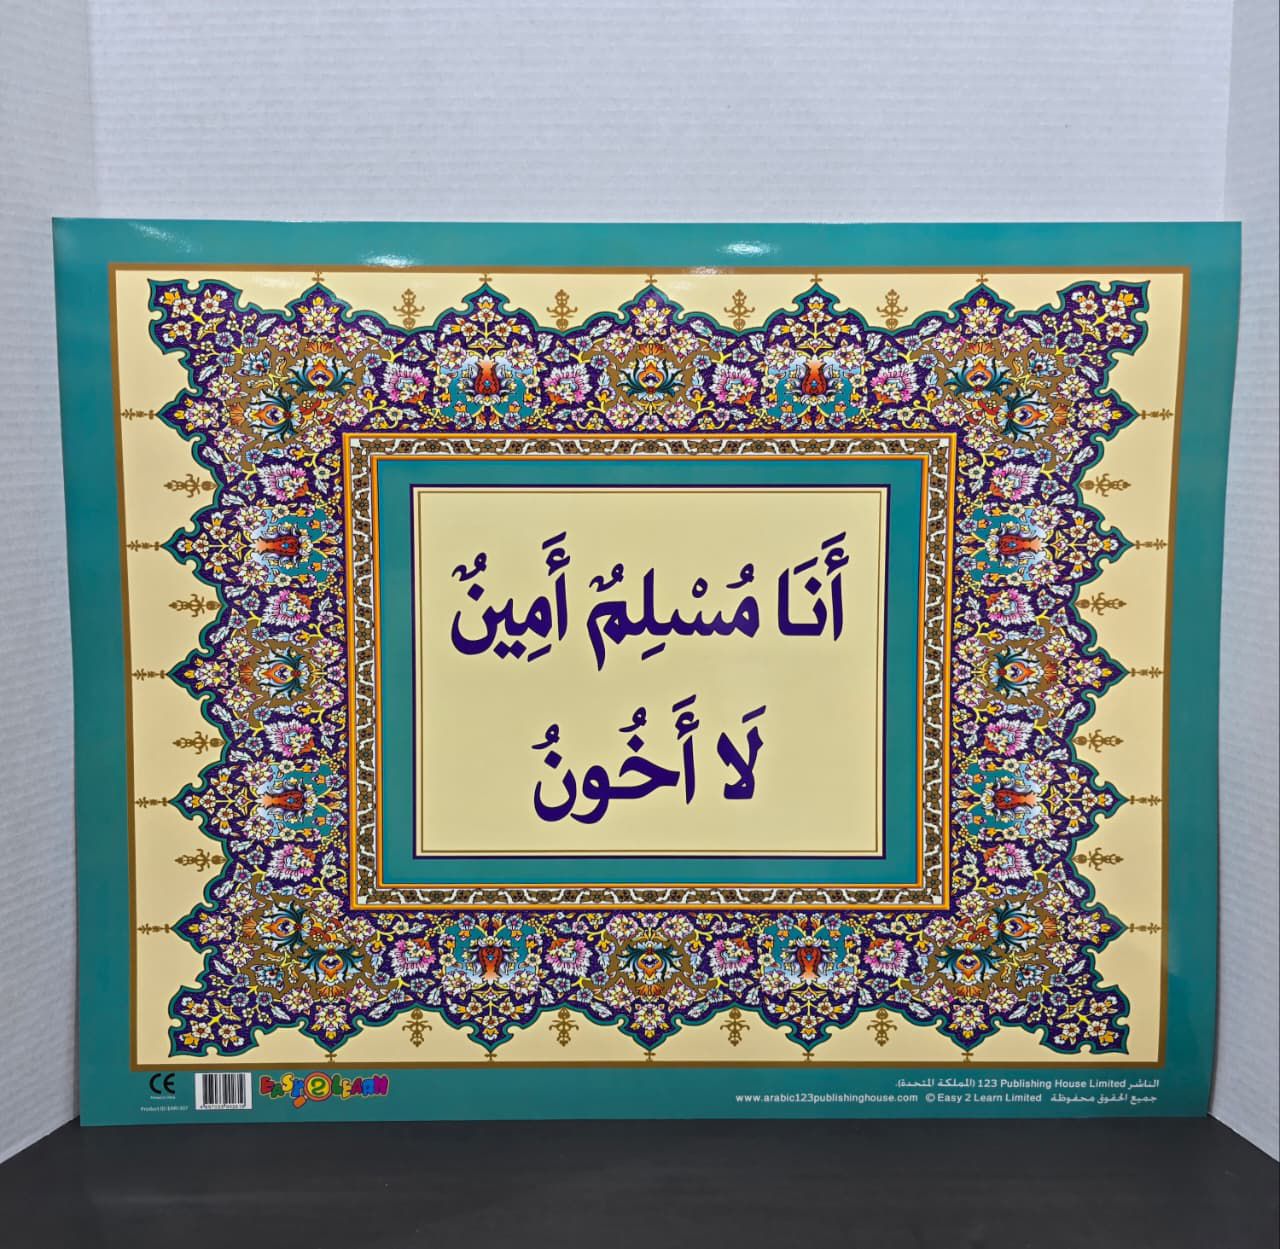 أَنَا مُسْلِمٌ أَمِينٌ
لَا أَخُونُ
CE
EASY 2 LEARN
الناشر 123 Publishing House Limited (المملكة المتحدة).
www.arabic123publishinghouse.com © Easy 2 Learn Limited جميع الحقوق محفوظة